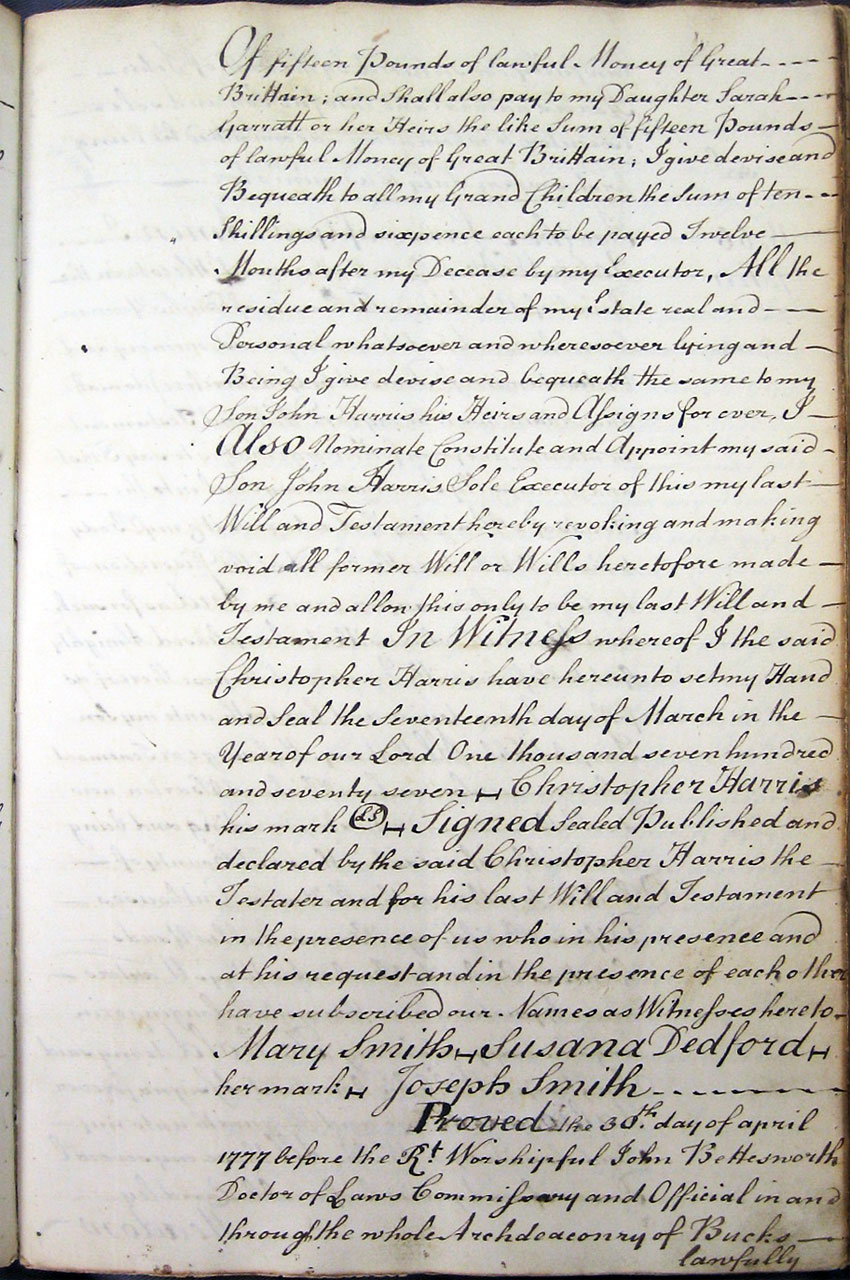 Of fifteen Pounds of lawful Money of Great----
Brittain; and Shall also pay to my Daughter Sarah----
Garratt or her Heirs the like Sum of fifteen Pounds—
of lawful Money of Great Brittain; I give devise and
Bequeath to all my Grand Children the Sum of ten--
Shillings and sixpence each to be payed Twelve—
Months after my Decease by my Executor, All the
residue and remainder of my Estate real and---
Personal whatsoever and wheresoever lying and—
Being I give devise and bequeath the same to my
Son John Harris his Heirs and Assigns for ever, I—
Also Nominate Constitute and Appoint my said-
Son John Harris Sole Executor of this my last—
Will and Testament hereby revoking and making
void all former Will or Wills heretofore made—
by me and allow this only to be my last Will and—
Testament In Witness whereof I the said
Christopher Harris have hereunto set my Hand
and Seal the Seventeenth day of March in the—
Year of our Lord One thousand seven hundred
and seventy seven Christopher Harris
his mark LS Signed Sealed Published and
declared by the said Christopher Harris the—
Testater and for his last Will and Testament
in the presence of us who in his presence and
at his request and in the presence of each other
have subscribed our Names as Witnesses hereto-
Mary Smith Susana Dedford
her mark Joseph Smith--------
Proved the 30th day of april
1777 before the Rt Worshipful John Bettesworth
Doctor of Laws Commissary and Official in and
through the whole Archdeaconry of Bucks—
lawfully